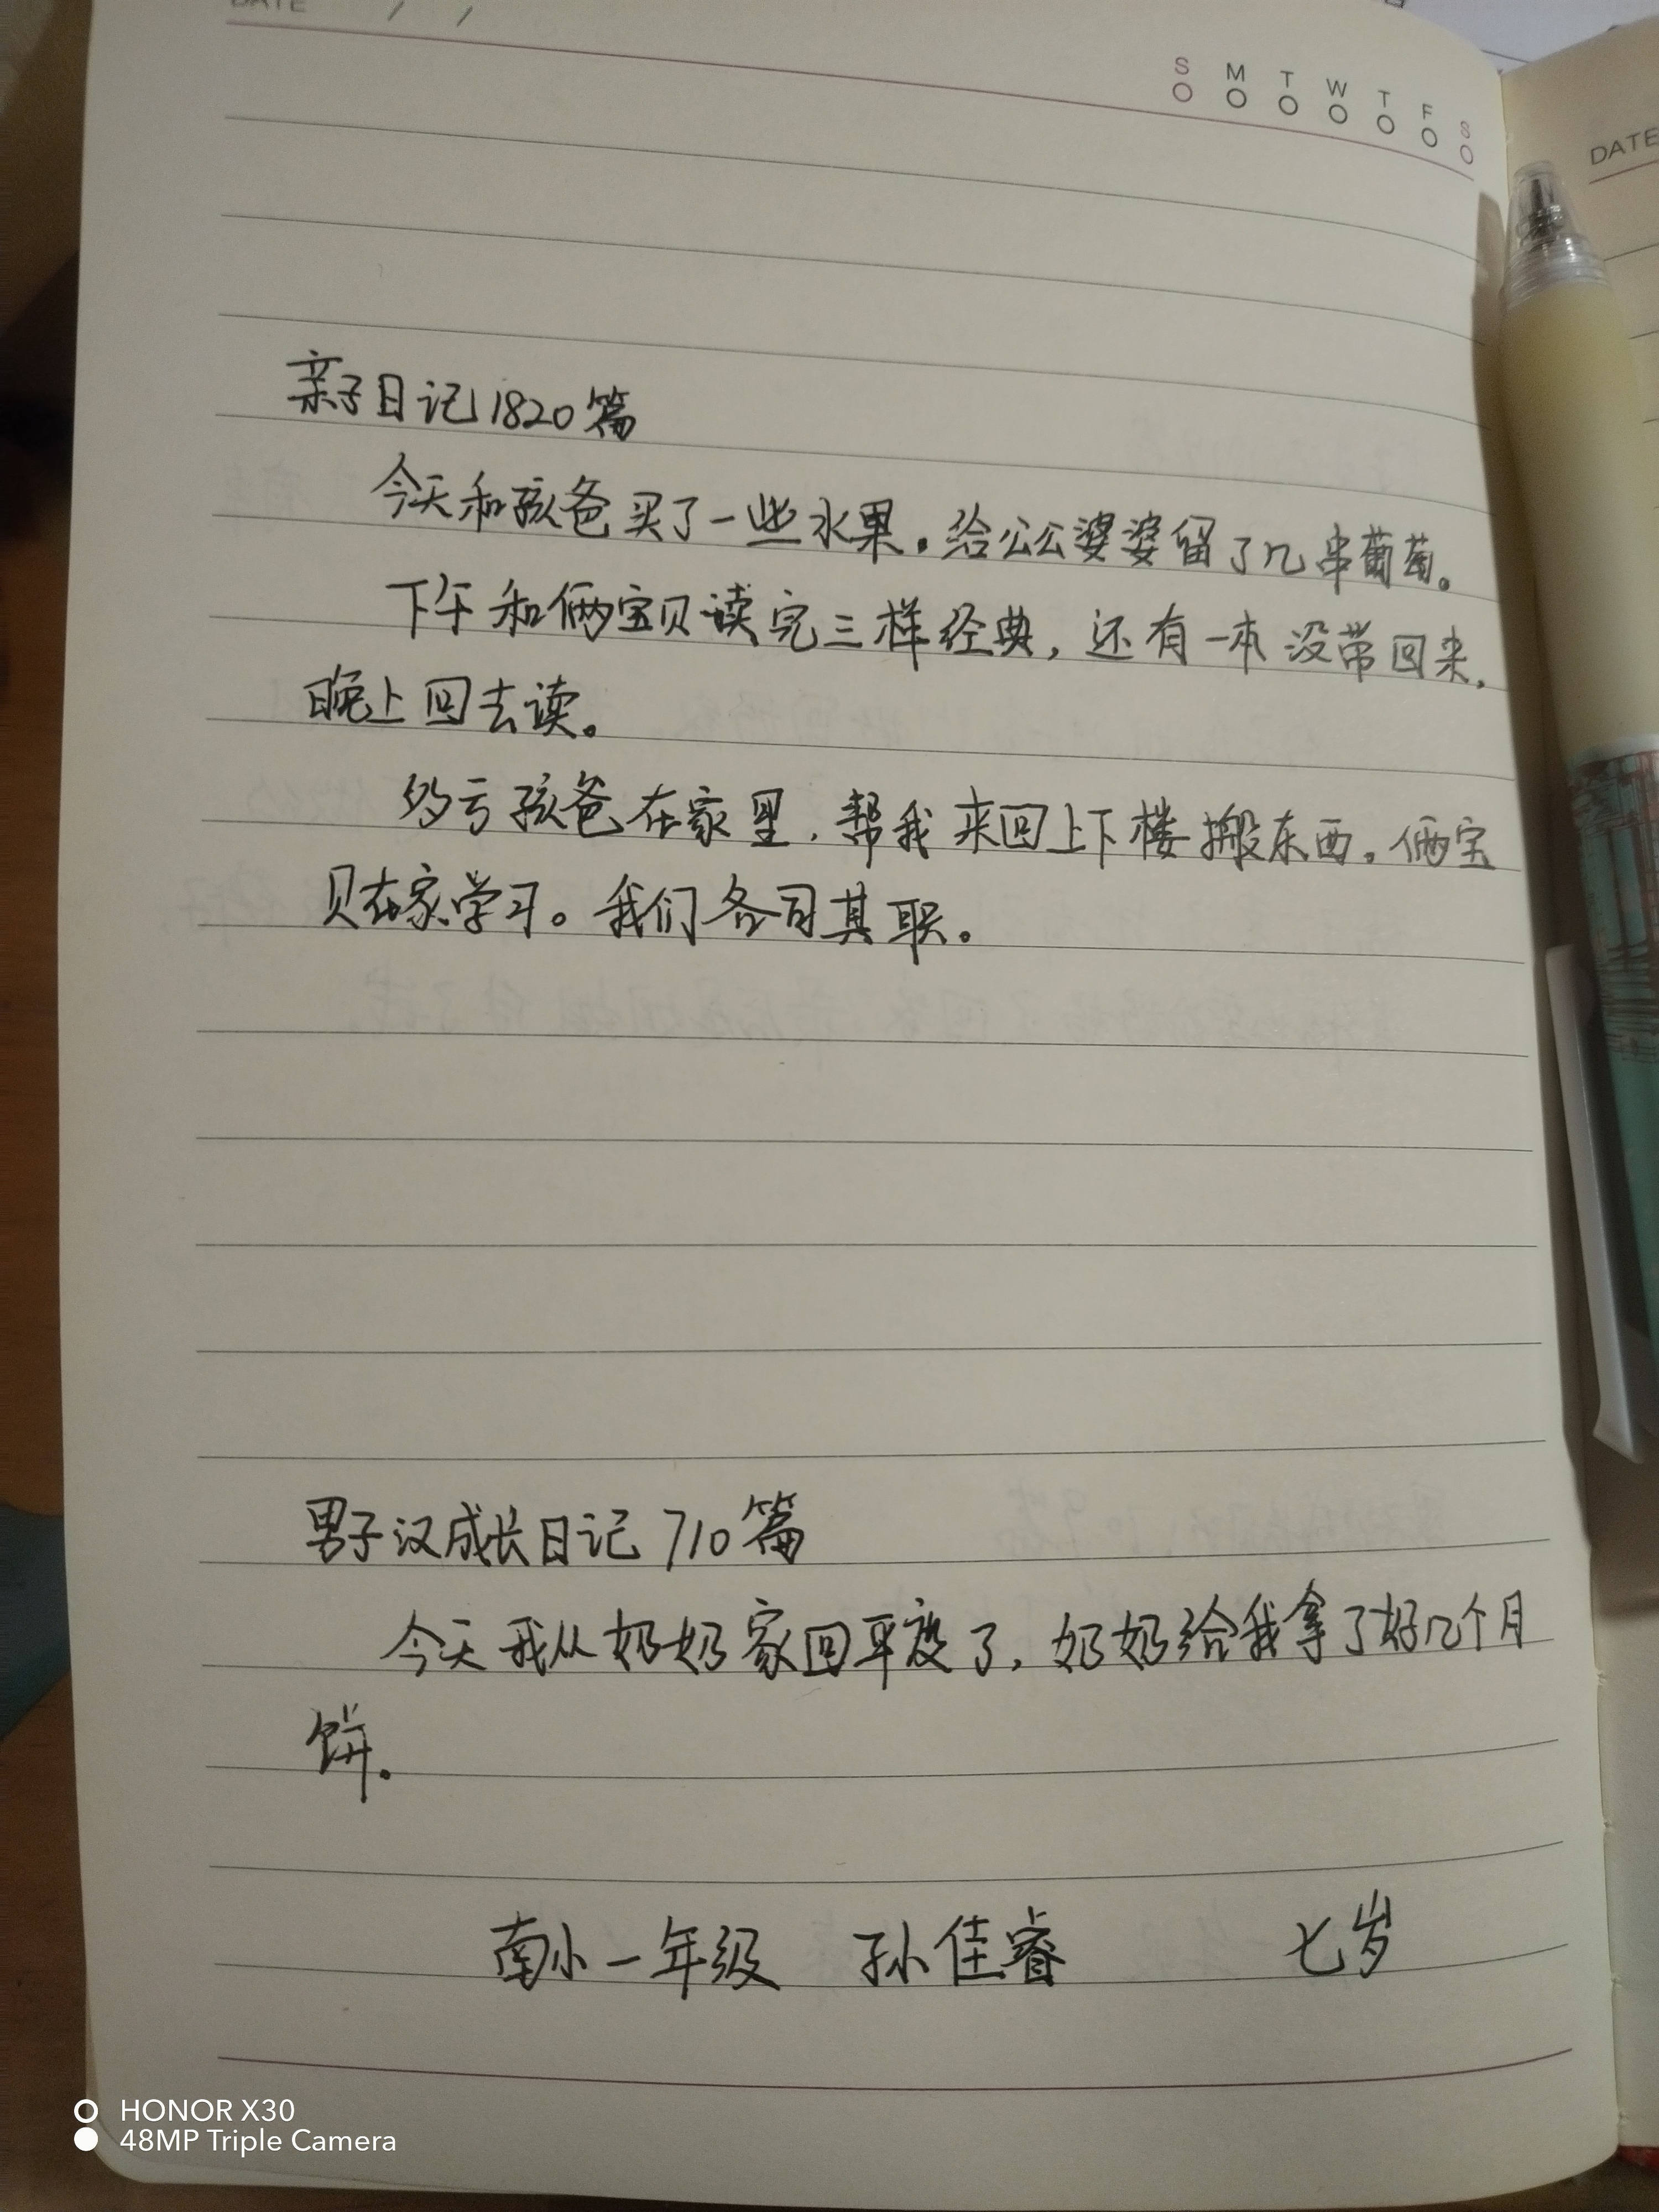 DATE / /
S M T W T F S
DATE
亲子日记1820篇
今天和孩爸买了一些水果。给公公婆婆留了几串葡萄。
下午和俩宝贝读完三样经典，还有一本没带回来，
晚上回去读。
多亏孩爸在家里，帮我来回上下楼搬东西。俩宝
贝在家学习。我们各司其职。
男子汉成长日记710篇
今天我从奶奶家回平度了，奶奶给我拿了好几个月
饼。
南小一年级 孙佳睿 七岁
HONOR X30
48MP Triple Camera